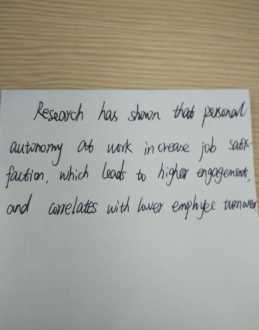 Research has shown that personal
autonomy at work increase job satis-
faction, which leads to higher engagement,
and correlates with lower employee turnover